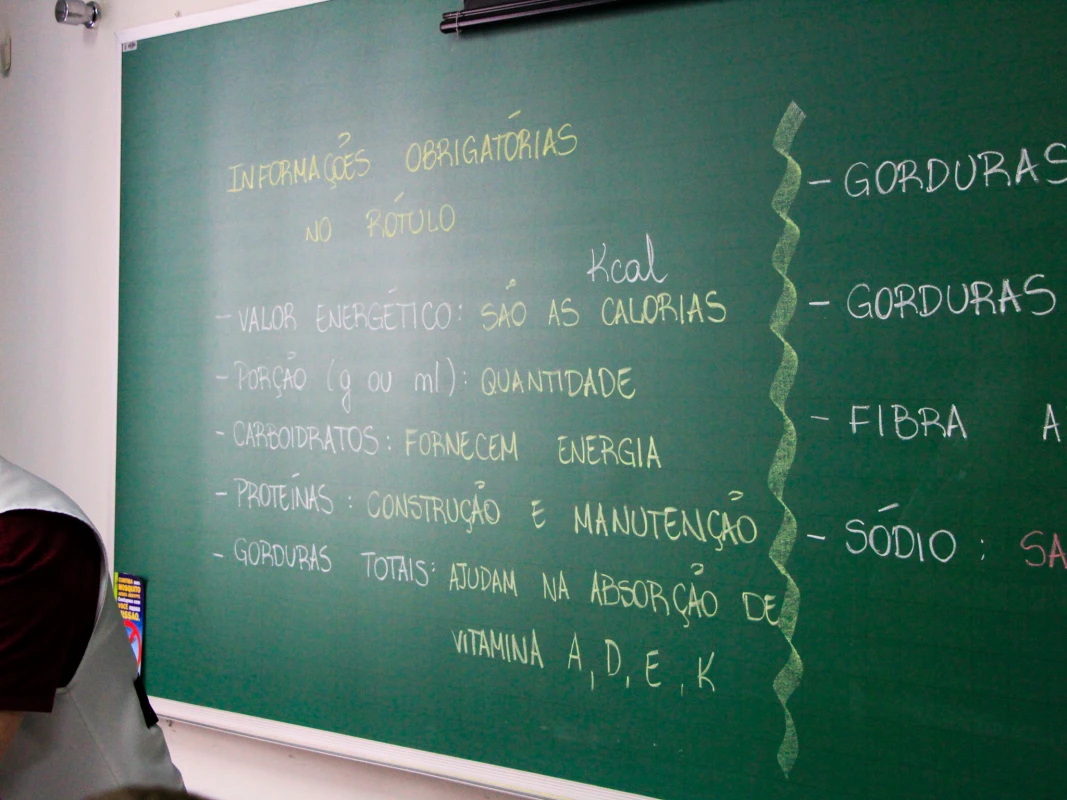 INFORMAÇÕES OBRIGATÓRIAS
NO RÓTULO
Kcal
- VALOR ENERGÉTICO: SÃO AS CALORIAS
- PORÇÃO (g ou ml): QUANTIDADE
- CARBOIDRATOS: FORNECEM ENERGIA
- PROTEÍNAS: CONSTRUÇÃO E MANUTENÇÃO
- GORDURAS TOTAIS: AJUDAM NA ABSORÇÃO DE
VITAMINA A, D, E, K
- GORDURAS
- GORDURAS
- FIBRA A
- SÓDIO: SA
MOSQUITO